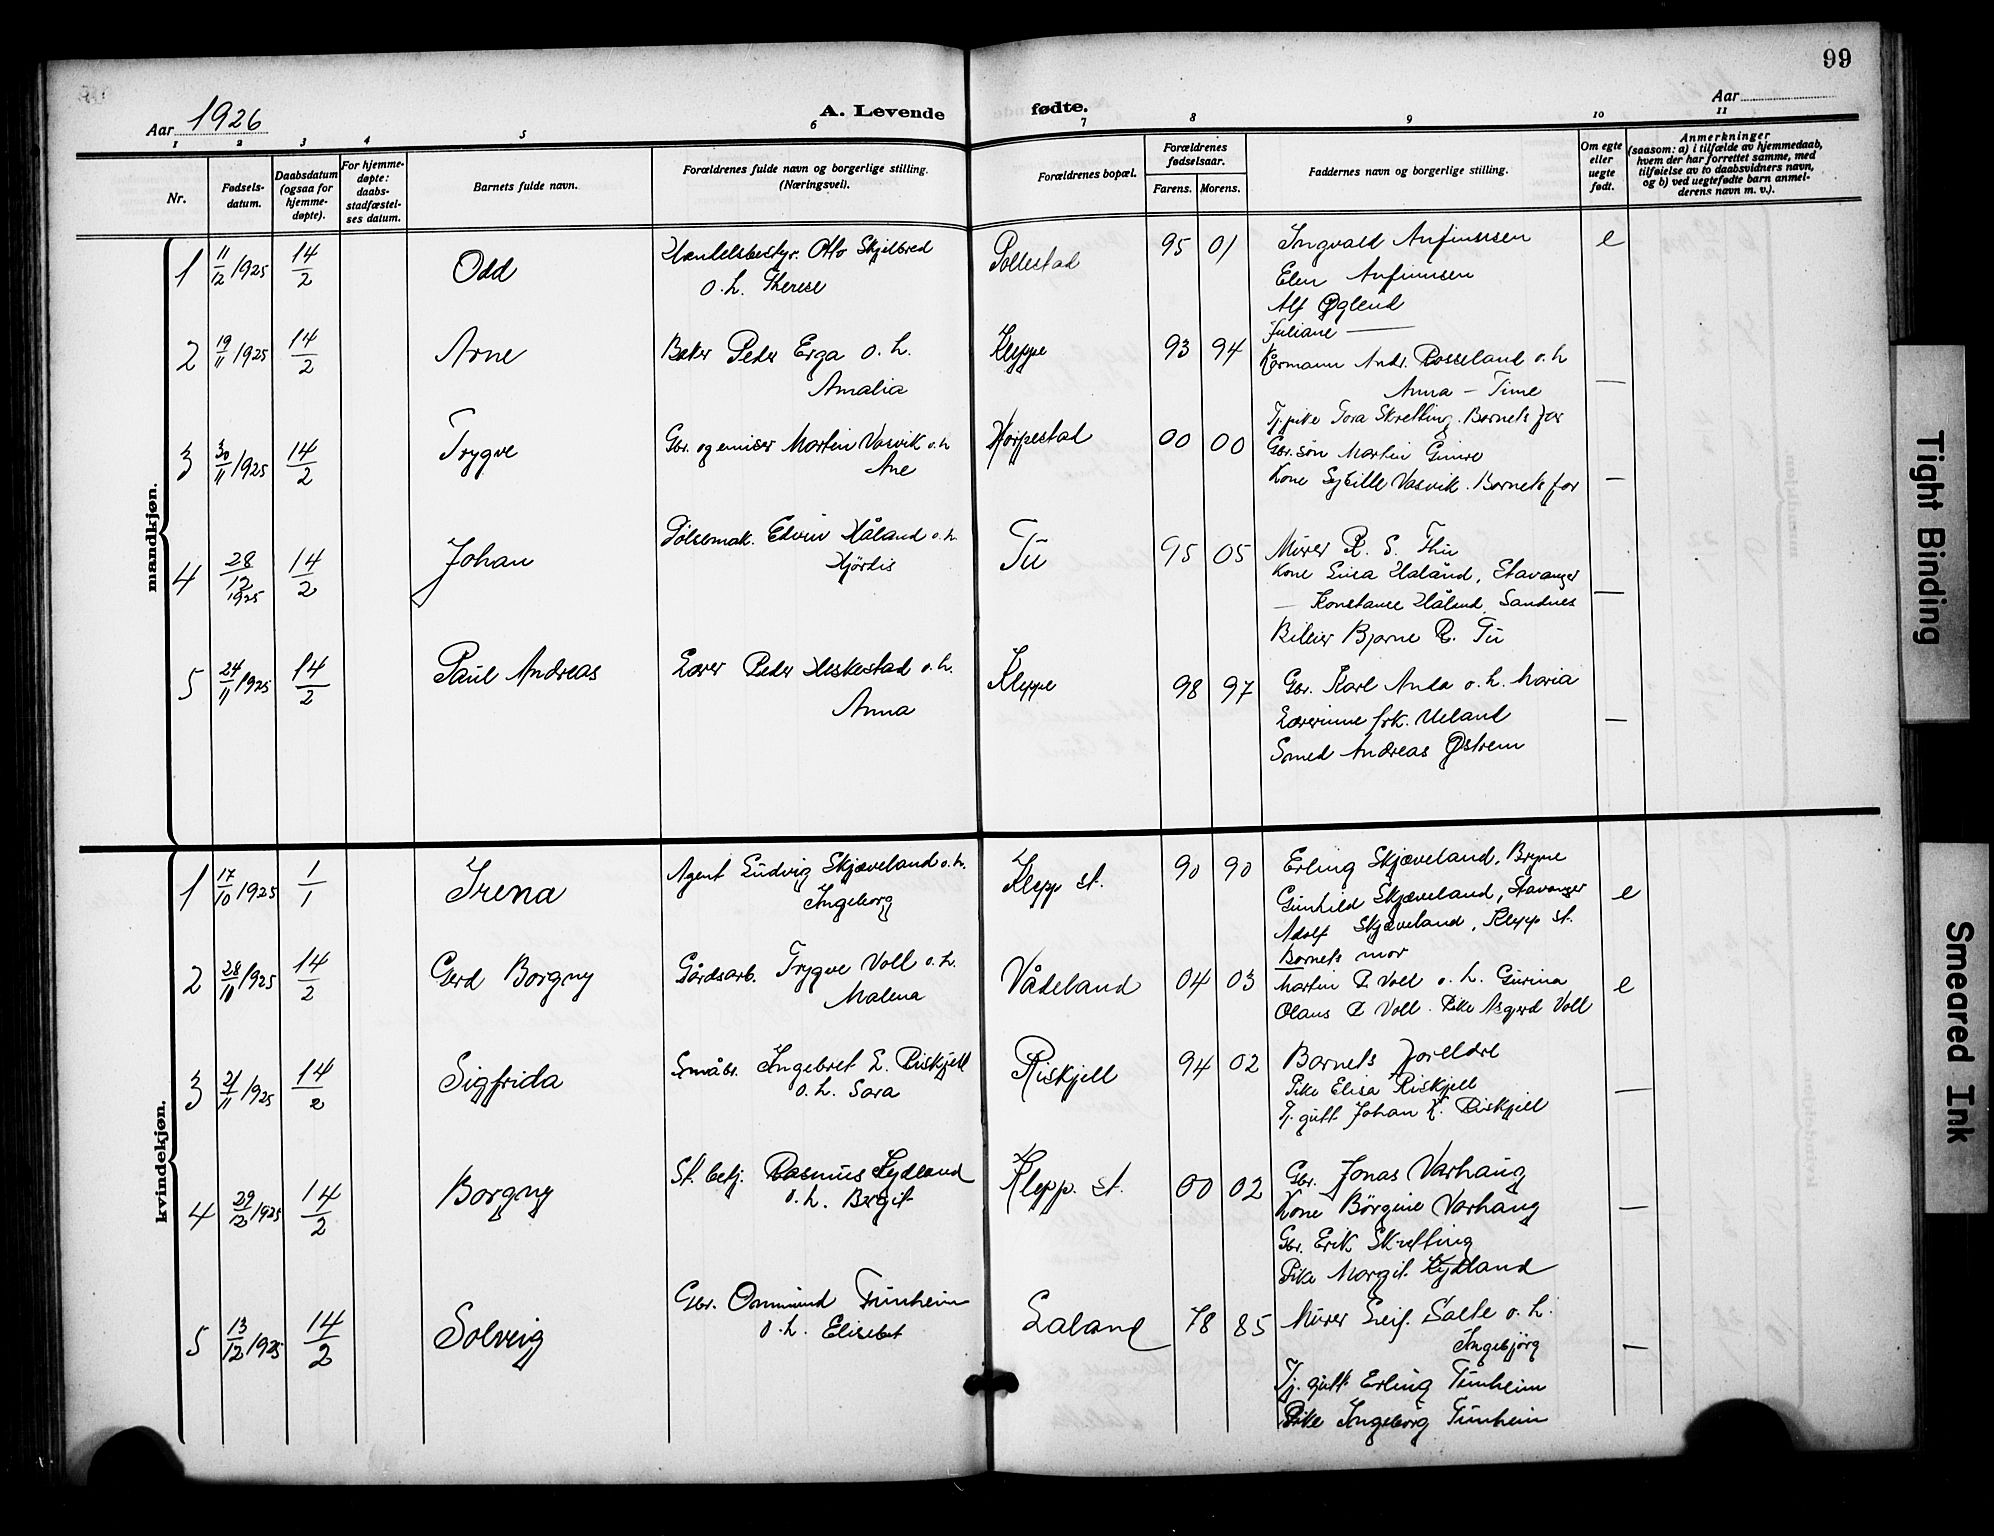 99
Aar 1926
A. Levende fødte.
Aar
1 2 3 4 5 6 7 8 9 10 11
Nr.
Fødsels-datum.
Daabsdatum (ogsaa for hjemme-døpte).
For hjemme-døpte: daabs-stadfæstel-ses datum.
Barnets fulde navn.
Forældrenes fulde navn og borgerlige stilling. (Næringsvei).
Forældrenes bopæl.
Forældrenes fødselsaar.
Farens. Morens.
Faddernes navn og borgerlige stilling.
Om egte eller uegte født.
Anmerkninger (saasom: a) i tilfælde av hjemmedaab, hvem der har forrettet samme, med tilføielse av to daabsvidners navn, og b) ved uegtefødte barn anmel-derens navn m. v.).
mandkjøn.
1 11/12 1925 14/2 Odd Handelsbestyr. Otto Skjelbred Pollestad 95 01 Ingvald Anfinnsen e
o. h. Therese Elen Anfinnsen
Alf Øglend
Juliane —
2 19/11 1925 14/2 Arne Baker Peder Erga o. h. Kleppe 93 94 Kørmann Andr. Rosseland o. h
Amalia Anna – Time —
3 30/11 1925 14/2 Trygve Gbr. og emiser Martin Vasvik o. h Horpestad 00 00 Tj. pike Tora Skretting. Barnets far
Ane Gbr. søn Martin Gimre
Kone Sybille Vasvik. Barnets far —
4 28/12 1925 14/2 Johan Pølsemak. Edvin Håland o. h. Tu 95 05 Murer R. S. Thu
Hjördis Kone Håland, Stavanger
— Konstanse Håland, Sandnes —
Bileier Bjarne R. Tu
5 24/11 1925 14/2 Paul Andreas Lærer Peder Heskestad o. h. Kleppe 98 97 Gbr. Karl Anda o. h. Maria
Anna Lærerinne frk. Ueland —
Smed Andreas Østrem
kvindekjøn.
1 17/10 1925 1/1 Irena Agent Ludvig Skjæveland o. h. Klepp st. 90 90 Erling Skjæveland, Bryne
Ingeborg Gunhild Skjæveland, Stavanger e
Adolf Skjæveland, Klepp st.
Barnets mor
2 28/10 1925 14/2 Gerd Borgny Gårdsarb. Trygve Voll o. h. Vådeland 04 03 Martin P. Voll o. h. Gurina e
Malena Olaus P. Voll. Pike Asgerd Voll
3 21/11 1925 14/2 Sigfrida Småbr. Ingebret E. Riskjell Riskjell 94 02 Barnets foreldre
o. h. Sara Pike Elisa Riskjell —
Tj. gutt Johan K. Riskjell
4 29/12 1925 14/2 Borgny St. betj. Rasmus Kydland Klepp. st. 00 02 Gbr. Jonas Varhaug
o. h. Bergit Kone Børgine Varhaug —
Gbr. Erik Skretting
Pike Margit Kydland
5 13/12 1925 14/2 Solveig Gbr. Ommund Tunheim Laland 78 85 Murer Leif Salte o. h.
o. h. Elisebet Ingebjørg —
Tj. gutt Erling Tunheim
Pike Ingeborg Tunheim
Tight Binding
Smeared Ink